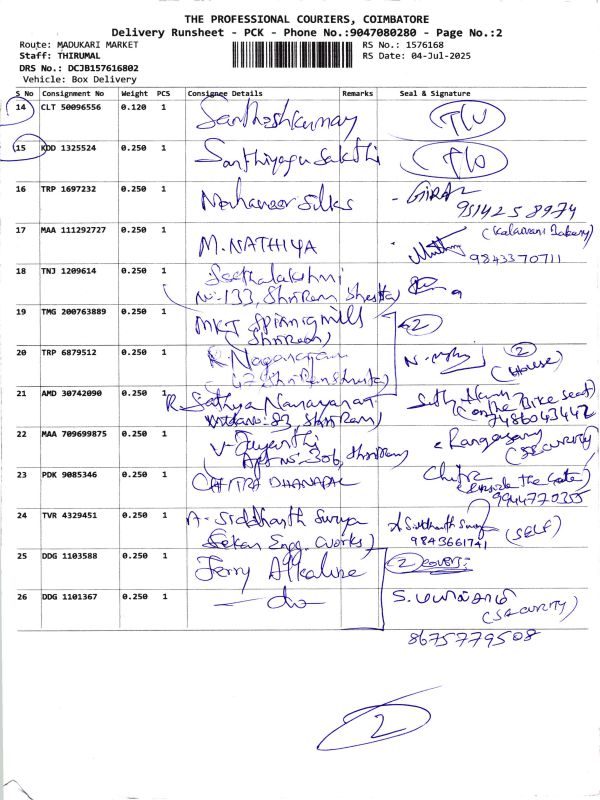 THE PROFESSIONAL COURIERS, COIMBATORE
Delivery Runsheet - PCK - Phone No.:9047080280 - Page No.:2
Route: MADUKARI MARKET RS No.: 1576168
Staff: THIRUMAL RS Date: 04-Jul-2025
DRS No.: DCJB157616802
Vehicle: Box Delivery
S No Consignment No Weight PCS Consignee Details Remarks Seal & Signature
14 CLT 50096556 0.120 1 Santhoshkumar
15 KDD 1325524 0.250 1 Santhiyagu Sakthi
16 TRP 1697232 0.250 1 Mahaveer Silks
9514258974
17 MAA 111292727 0.250 1 M. NATHIYA (Kalaivani Bakery)
9843370711
18 TNJ 1209614 0.250 1 Seethalakshmi
No:133, Shri Ram Shresta
19 TMG 200763889 0.250 1 MKT Spinnig mills 2
(Shri Ram)
20 TRP 6879512 0.250 1 R. Nagarajan 2
(House)
21 AMD 30742090 0.250 1 R. Sathya Narayanan
83, Shri Ram) (on the Bike Seat)
7486043442
22 MAA 709699875 0.250 1 V. Jayanthi Rangasamy
Apt no:306, Shri Ram (SECURITY)
23 PDK 9085346 0.250 1 CHITRA DHANAPAL Chitra
(Inside The Gate)
9944770355
24 TVR 4329451 0.250 1 A. Siddharth Surya A Siddharth Surya (SELF)
Sekar Engg. Works) 9843661741
25 DDG 1103588 0.250 1 Jerry Alkaline 2 covers:
26 DDG 1101367 0.250 1 — do — S.
(SECURITY)
8675779508
2